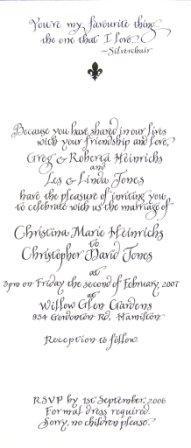 You're my favourite thing
the one that I love.
~Silverchair
Because you have shared in our lives
with your friendship and love,
Greg & Roberta Heinrichs
and
Les & Linda Jones
have the pleasure of inviting you
to celebrate with us the marriage of
Christina Marie Heinrichs
to
Christopher David Jones
at
3pm on Friday the second of February 2007
at
Willow Glen Gardens
934 Gordonton Rd, Hamilton
Reception to follow
RSVP by 1st September, 2006
Formal dress required.
Sorry, no children please.